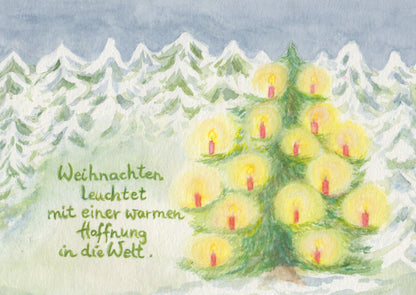 Weihnachten
leuchtet
mit einer warmen
Hoffnung
in die Welt.